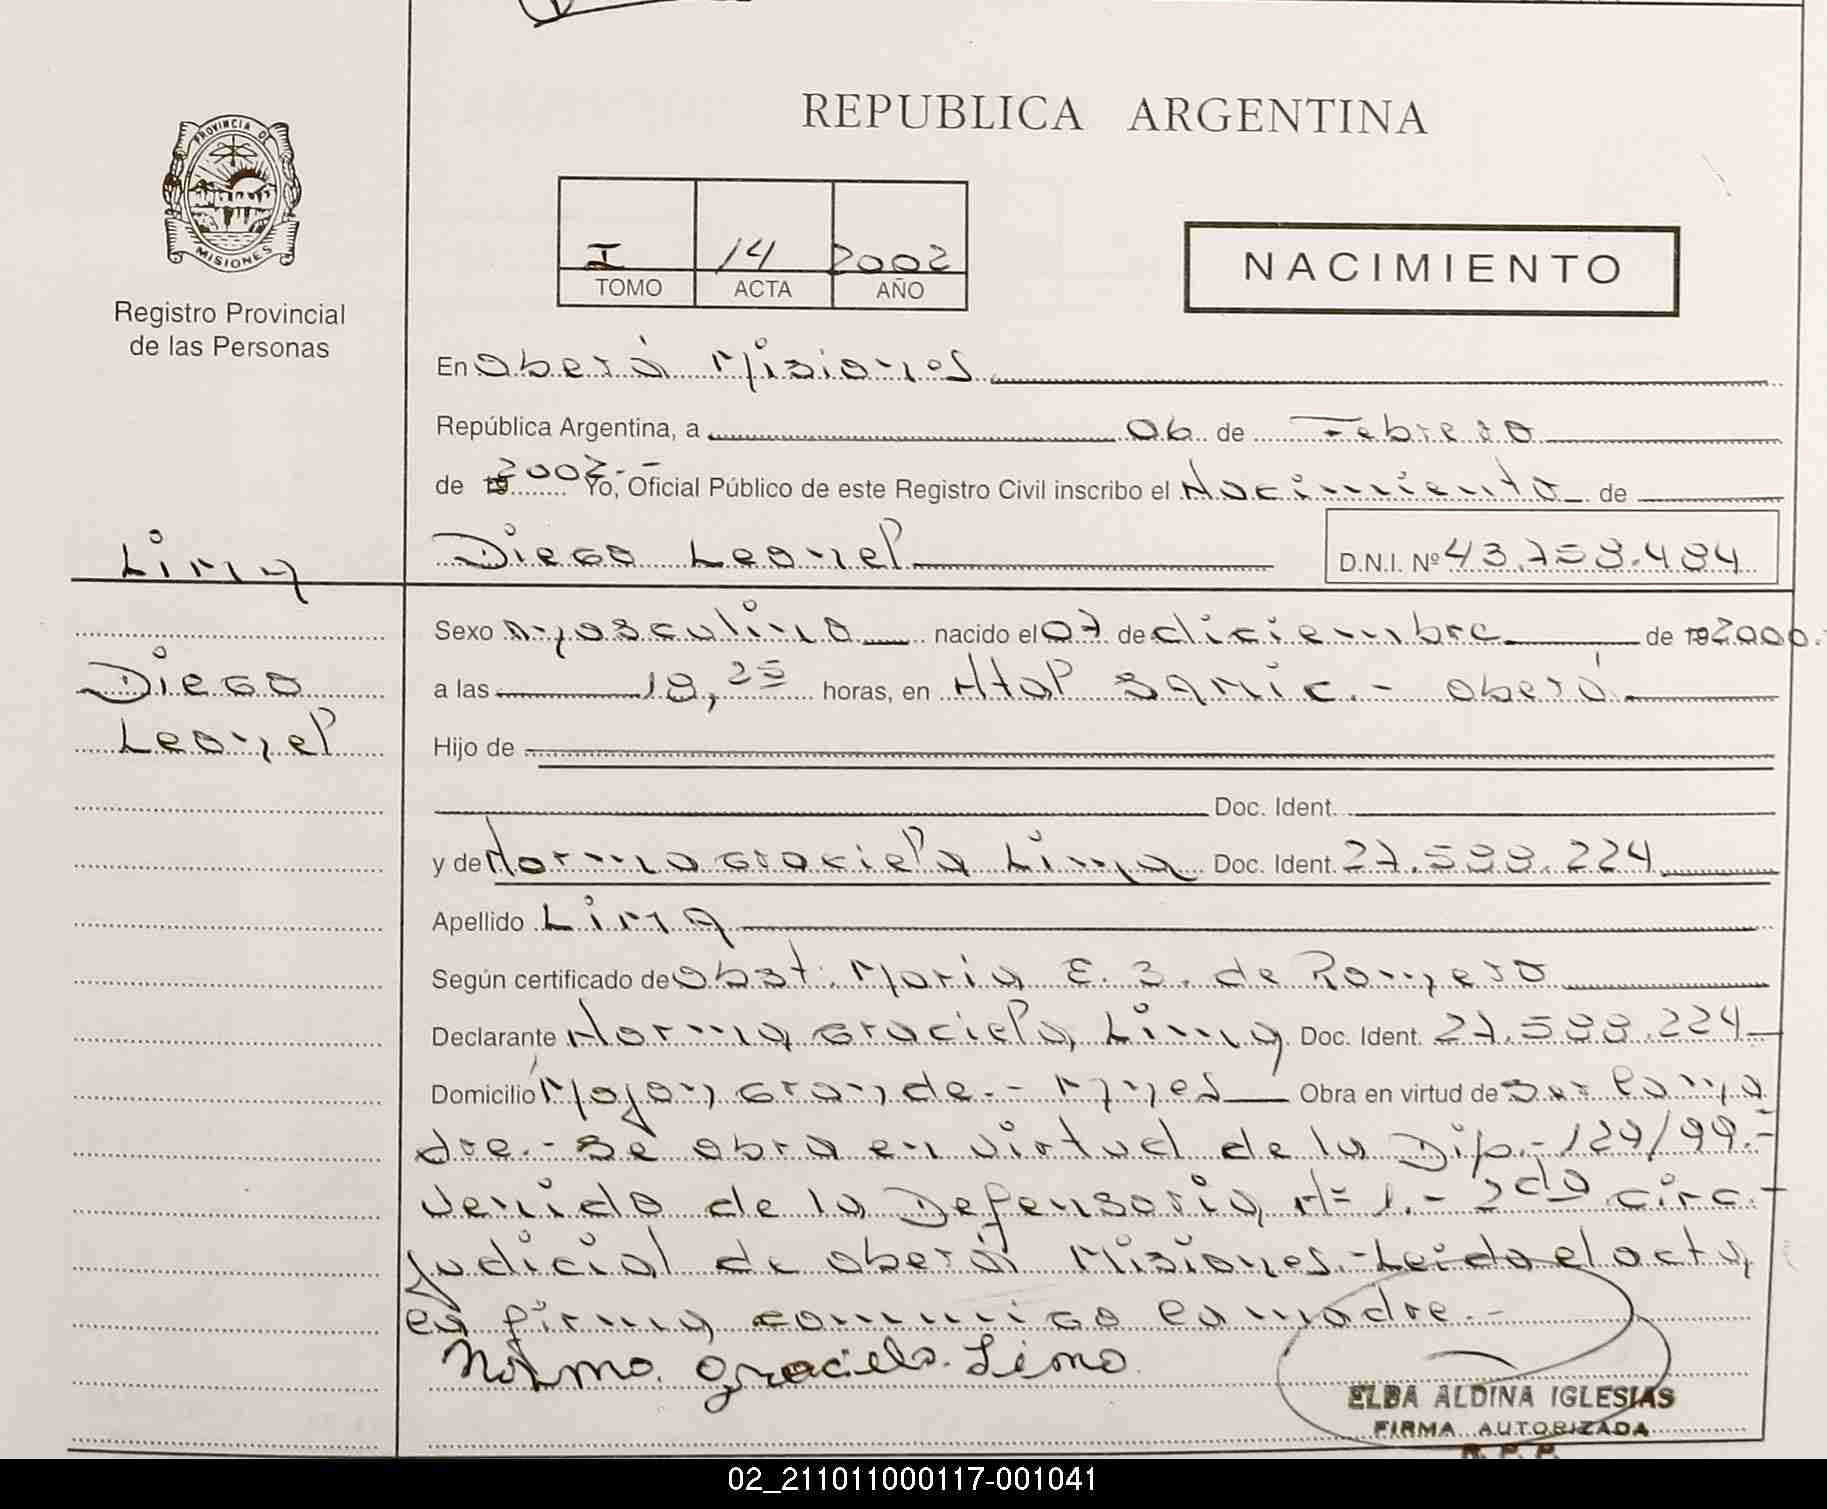 PROVINCIA DE
MISIONES
Registro Provincial
de las Personas
REPUBLICA ARGENTINA
I 14 2002
TOMO ACTA AÑO
NACIMIENTO
En Oberá Misiones
República Argentina, a 06 de Febrero
de 19 2002.- Yo, Oficial Público de este Registro Civil inscribo el Nacimiento de
Lima
Diego Leonel D.N.I. Nº
Sexo masculino nacido el 07 de diciembre de 19 2000.
Diego
a las horas, en Htal Samic.- Oberá
Leonel
Hijo de
Doc. Ident.
y de Norma Graciela Lima Doc. Ident. 27.588.224
Apellido Lima
Según certificado de Obst. Maria E. S. de Romero
Declarante Norma Graciela Lima Doc. Ident. 27.588.224
Domicilio Mojon Grande.- Mnes Obra en virtud de Ser la ma
dre.- Se obra en virtud de la Dip.- /99.-
venida de la Defensoria Nº 1.- 2da circ.-
judicial de Oberá Misiones.- Leida el acta,
la firma conmigo la madre.-
Norma. Graciela. Lima.
ELBA ALDINA IGLESIAS
FIRMA AUTORIZADA
R. P. P.
02_211011000117-001041